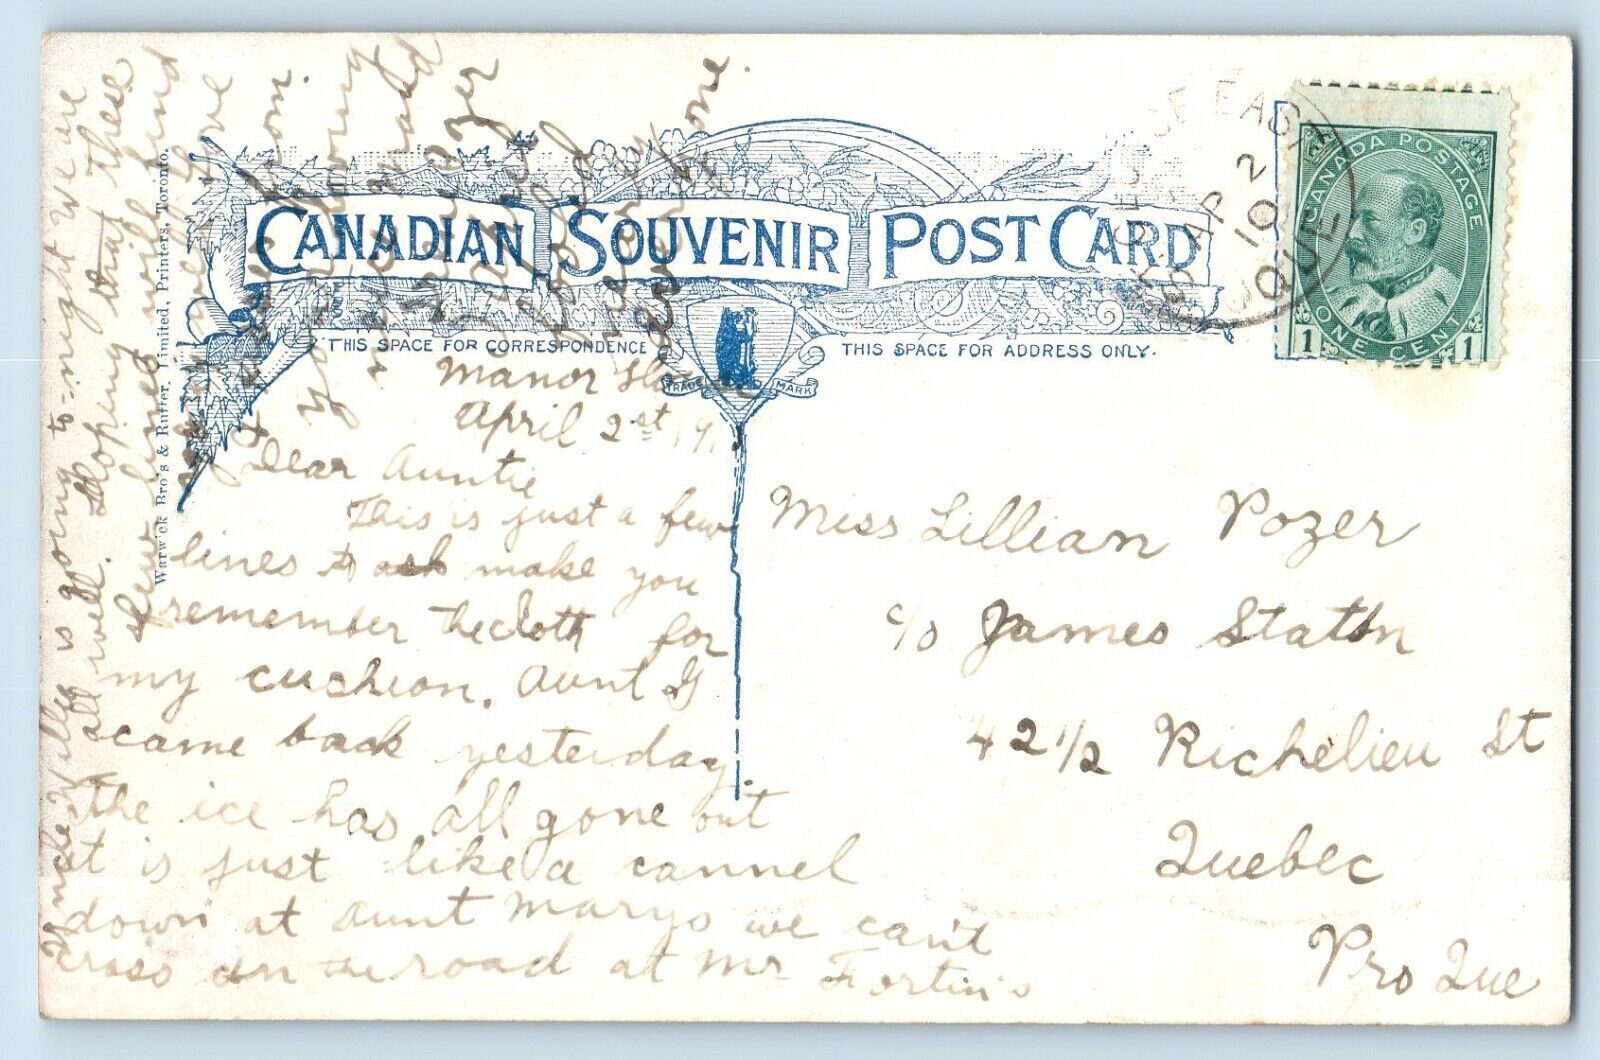 CANADIAN SOUVENIR POST CARD
THIS SPACE FOR CORRESPONDENCE
THIS SPACE FOR ADDRESS ONLY.
TRADE MARK
Warwick Bro's & Rutter, Limited, Printers, Toronto.
CANADA POSTAGE
1 ONE CENT 1
EAST
AP 2
10
QUE
Manor
April 2st 19
Dear Auntie
This is just a few
lines to ask make you
remember the cloth for
my cushion. Aunt G
came back yesterday.
the ice has all gone out
it is just like a cannel
down at Aunt Marys we can't
cross on the road at Mr Fortin's
Uncle Willie is going to-night we are
all well. Hopeing that these
few lines will find
you
love
from
your
one.
Miss Lillian Pozer
c/o James Staton
42 1/2 Richelieu St
Quebec
Pro Que